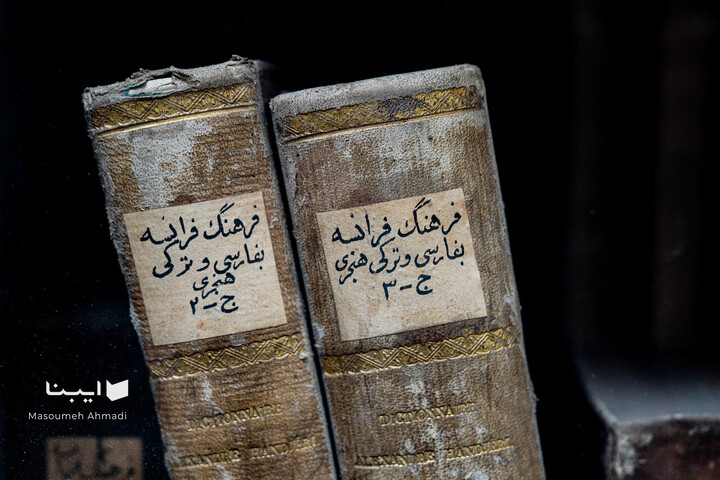 فرهنگ فرانسه
بفارسی و ترکی
هنجری
ج - ۲
DICTIONNAIRE
ALEXANDRE HANDJÉRI
فرهنگ فرانسه
بفارسی و ترکی هنجری
ج - ۳
DICTIONNAIRE
ALEXANDRE HANDJÉRI
ایبنا
Masoumeh Ahmadi